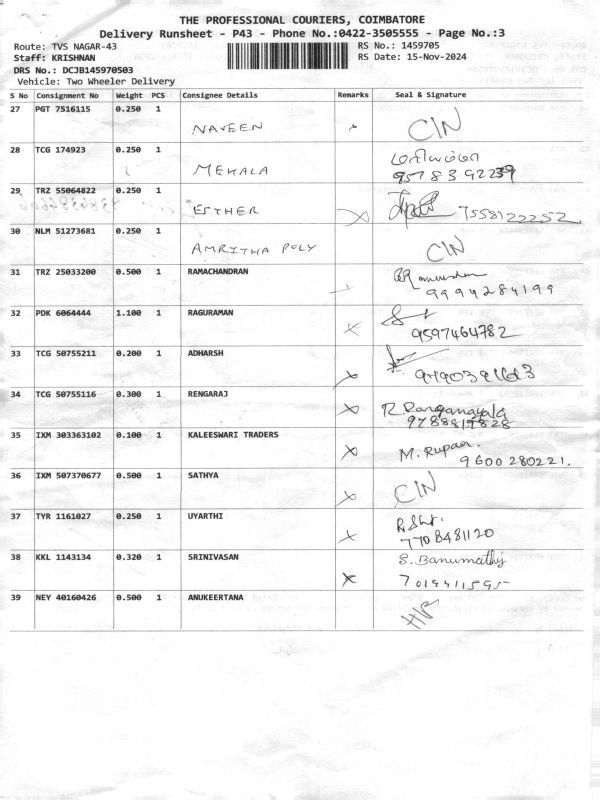 THE PROFESSIONAL COURIERS, COIMBATORE
Delivery Runsheet - P43 - Phone No.:0422-3505555 - Page No.:3
Route: TVS NAGAR-43 RS No.: 1459705
Staff: KRISHNAN RS Date: 15-Nov-2024
DRS No.: DCJB145970503
Vehicle: Two Wheeler Delivery
S No Consignment No Weight PCS Consignee Details Remarks Seal & Signature
27 PGT 7516115 0.250 1
NAVEEN CIN
28 TCG 174923 0.250 1
MEKALA 9578392239
29 TRZ 55064822 0.250 1
ESTHER 7558122252
30 NLM 51273681 0.250 1
AMRITHA POLY CIN
31 TRZ 25033200 0.500 1 RAMACHANDRAN
9994284199
32 PDK 6064444 1.100 1 RAGURAMAN
9597464782
33 TCG 50755211 0.200 1 ADHARSH
34 TCG 50755116 0.300 1 RENGARAJ
R Ranganayaki
9788819828
35 IXM 303363102 0.100 1 KALEESWARI TRADERS
M. Rupaa.
9600280221.
36 IXM 507370677 0.500 1 SATHYA
CIN
37 TYR 1161027 0.250 1 UYARTHI
7708481120
38 KKL 1143134 0.320 1 SRINIVASAN
S. Banumathy
7019411595
39 NEY 40160426 0.500 1 ANUKEERTANA